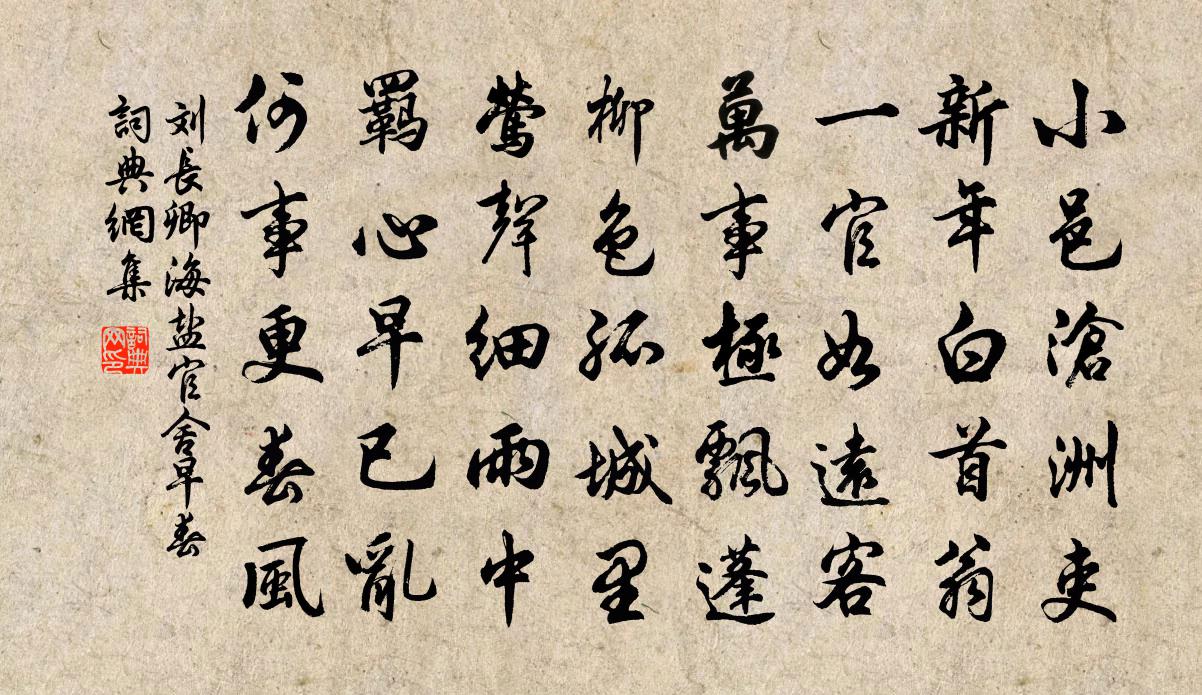 小邑滄洲吏
新年白首翁
一官如遠客
萬事極飄蓬
柳色孤城里
鶯聲細雨中
羈心早已亂
何事更春風
刘長卿海盐官舍早春
詞典網集
詞典
网印